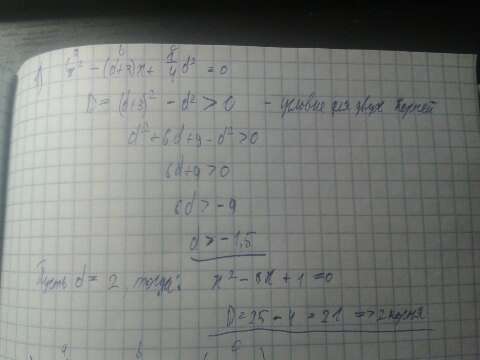 a b c
1) x² - (d+3)x + 1/4 d² = 0
D = (d+3)² - d² > 0 - условие для двух корней
d² + 6d + 9 - d² > 0
6d + 9 > 0
6d > -9
d > -1,5
Пусть d = 2, тогда: x² - 5x + 1 = 0
D = 25 - 4 = 21 => 2 корня